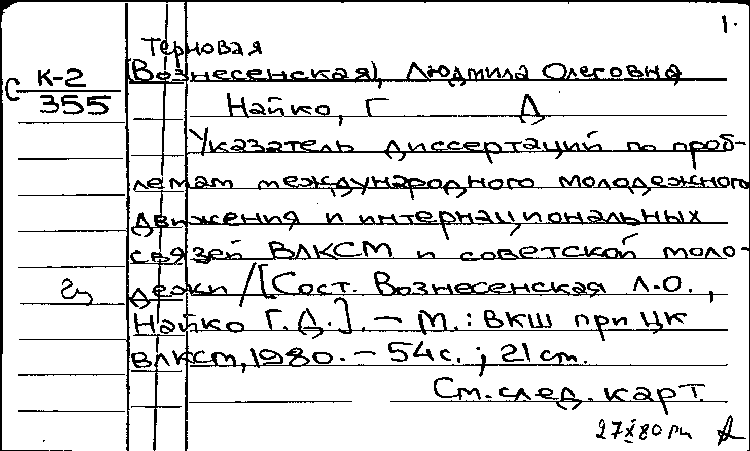 1.
Терновая
С К-2
355
(Вознесенская), Людмила Олеговна
Найко, Г Д
Указатель диссертаций по проб-
лемам международного молодежного
движения и интернациональных
связей ВЛКСМ и советской моло-
дежи / [Сост. Вознесенская Л.О.,
Найко Г.Д.]. – М.: ВКШ при ЦК
ВЛКСМ, 1980. – 54 с.; 21 см.
См. след. карт.
27 X 80